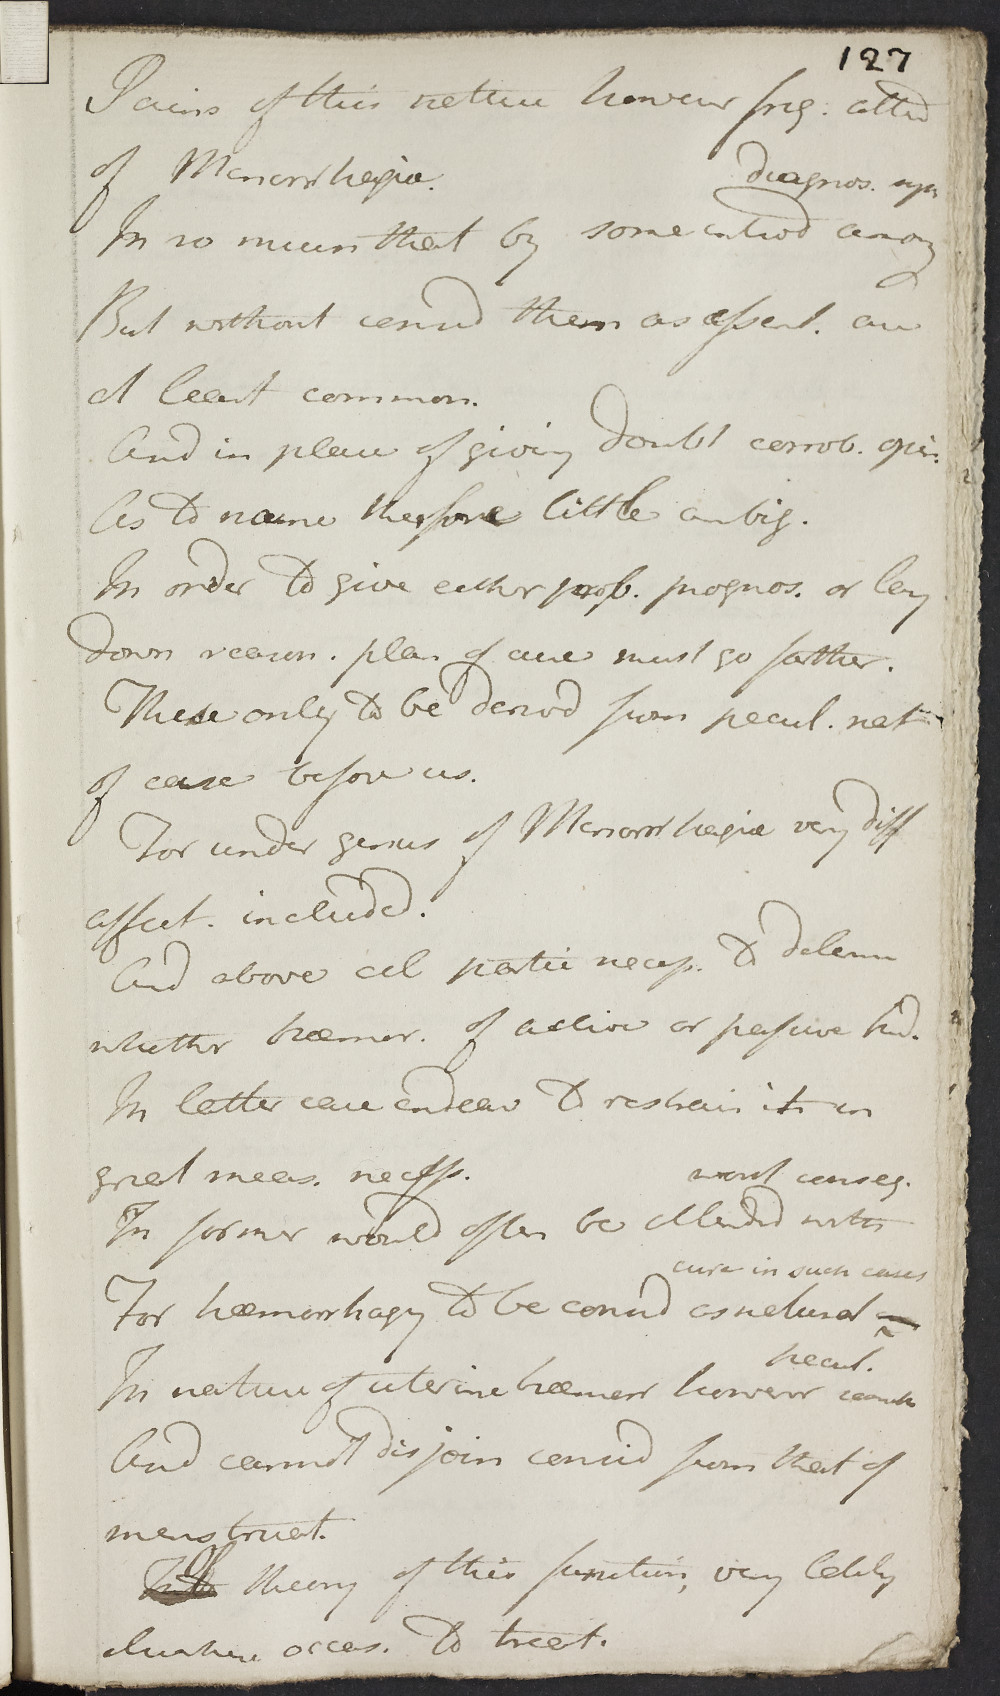 127
Pains of this nature however freq: attend
of Menorrhagia.
diagnos. sym
In so much that by some introd among
But without consid them as essent. are
at least common.
And in place of giving doubt corrob. opin.
As to name therefore little ambig.
In order to give either prob. prognos. or lay
down reason. plan of cure must go farther.
These only to be derivd from pecul. nat
of case before us.
For under genus of Menorrhagia very diff
affect. included.
And above all partic necess. to determ
whether haemor. of active or passive kind.
In latter case endeav to restrain it in
great meas. necess.
worst conseq.
In former would often be attended with
cure in such cases
For haemorrhagy to be consid as natural
pecul.
In nature of uterine haemorr however
And cannot disjoin consid from that of
menstruat.
Of theory of this function, very lately
elsewhere occas. to treat.